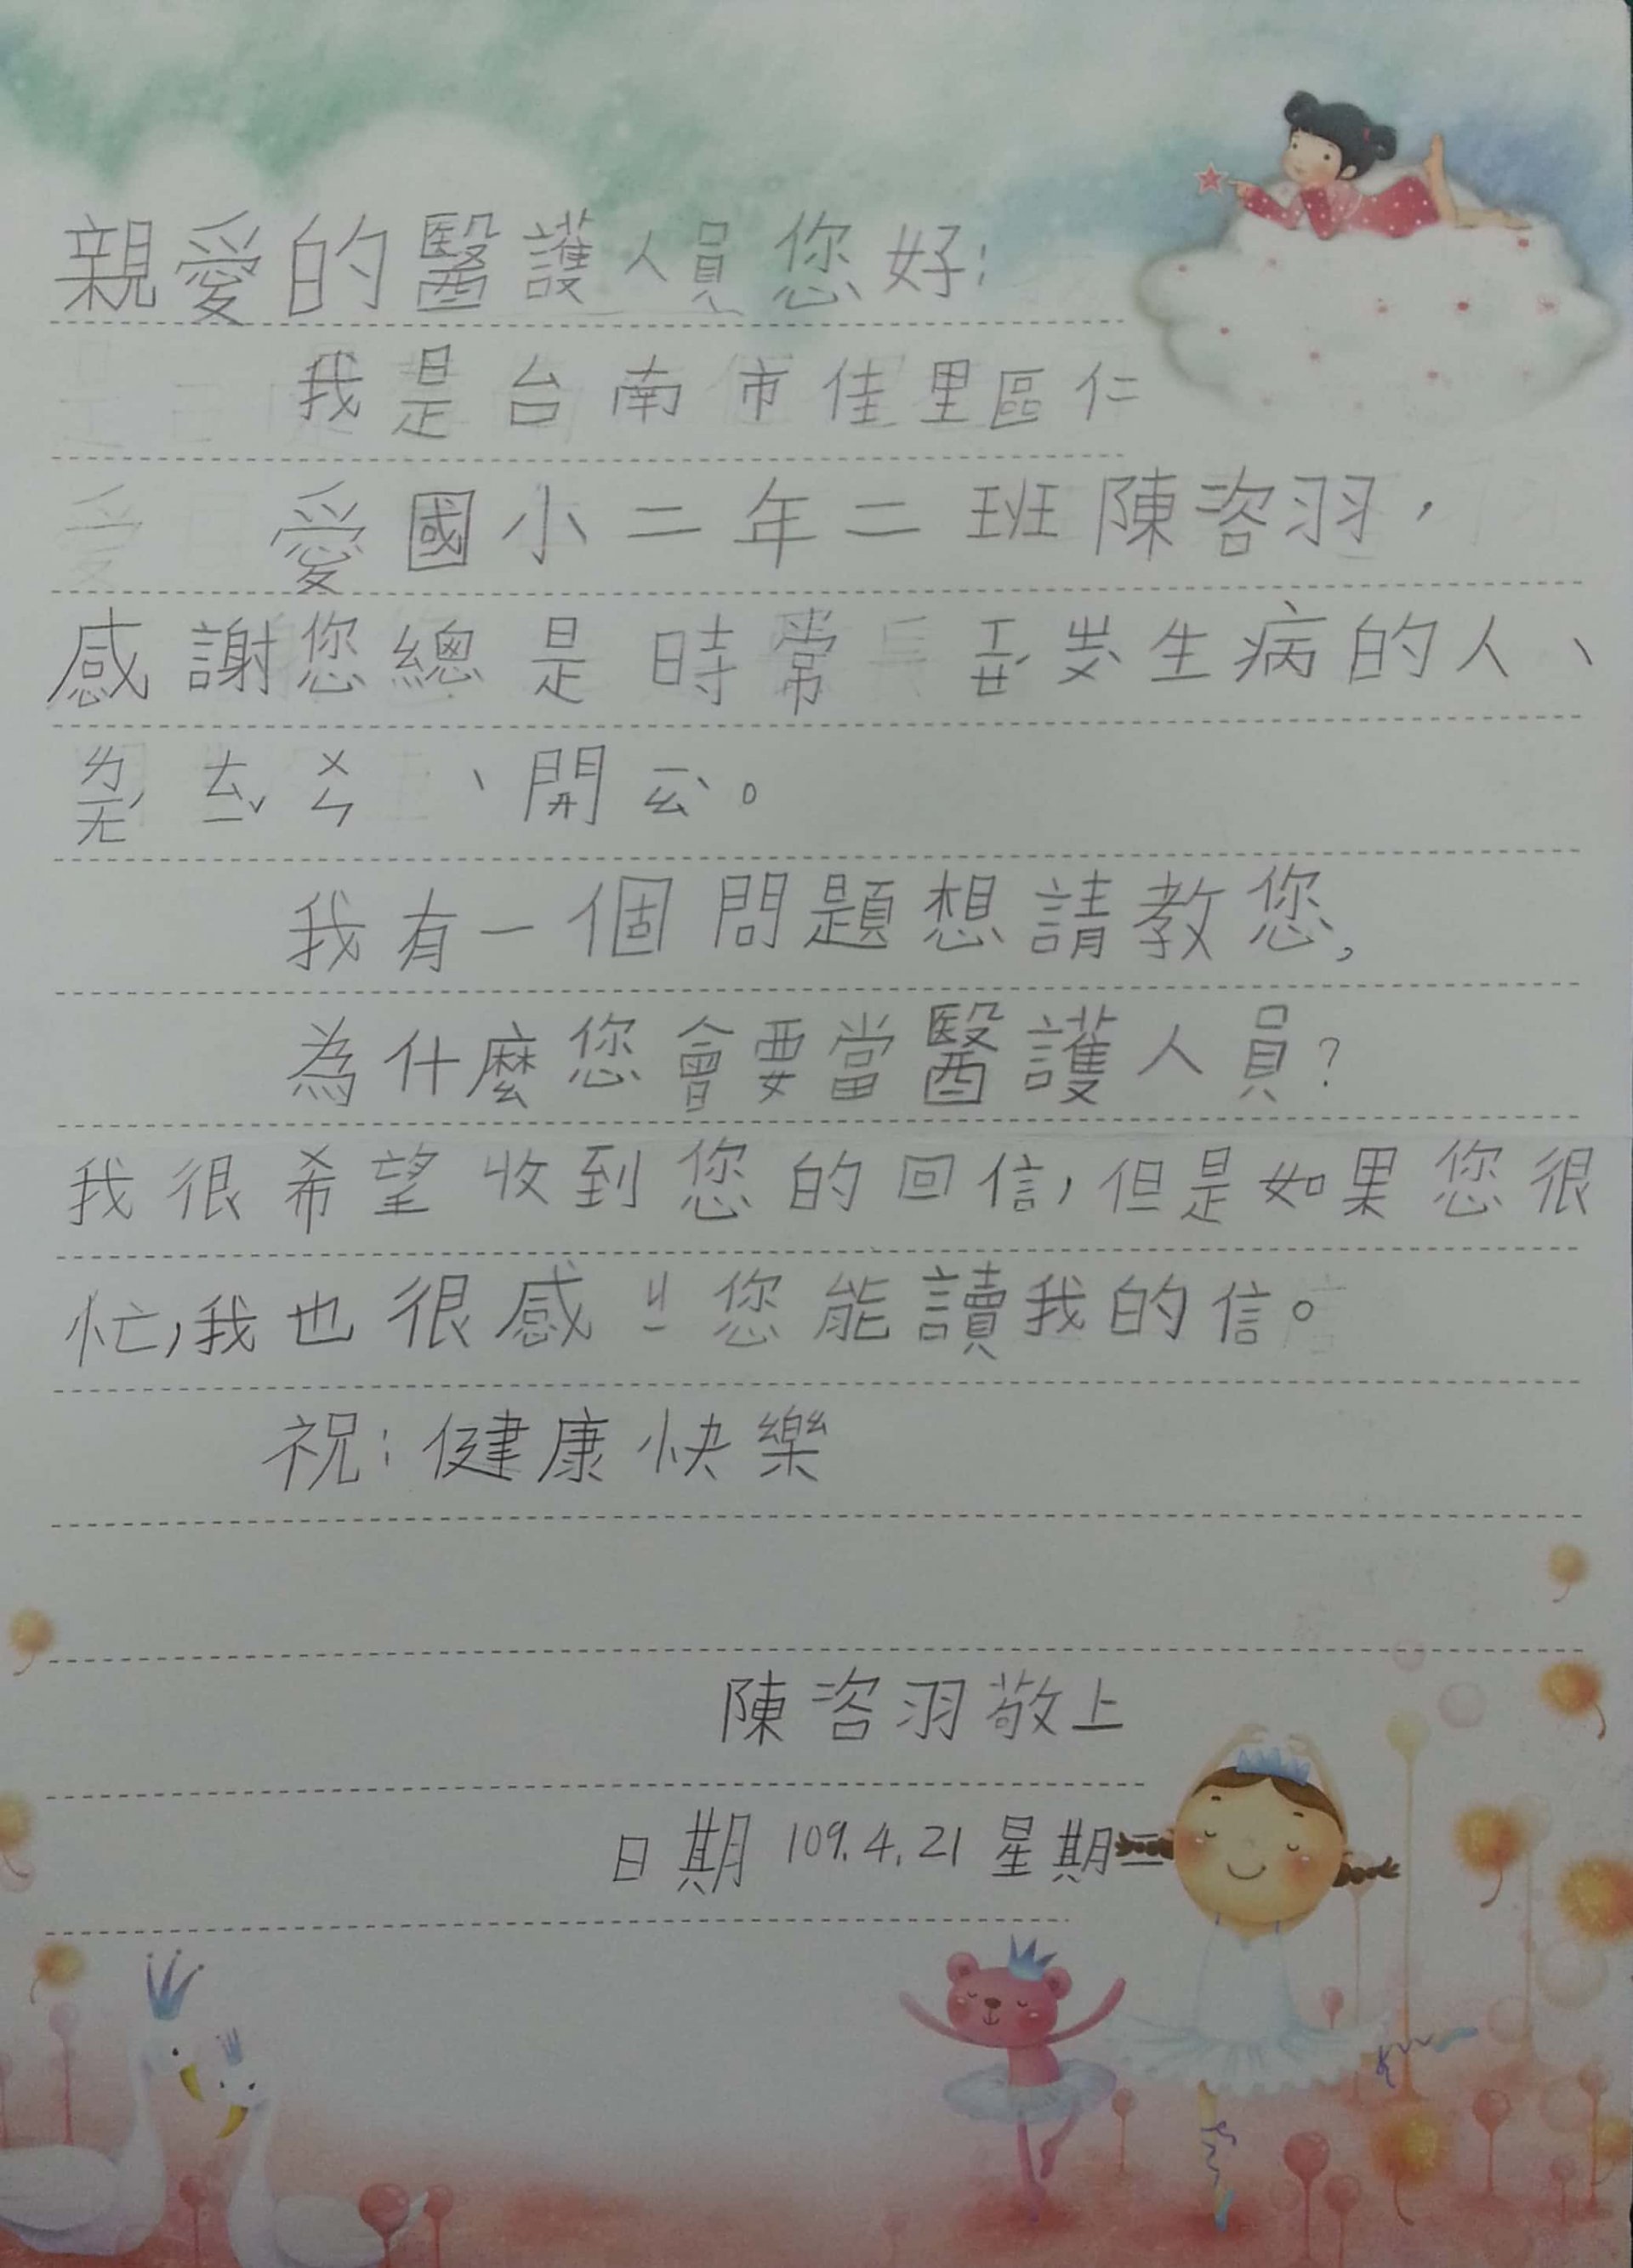 親愛的醫護人員您好:
我是台南市佳里區仁
愛國小二年二班陳咨羽，
感謝您總是時常ㄒㄧㄝˊㄓㄨˋ生病的人、
ㄌㄧㄤˊㄊㄧˇㄨㄣ、開ㄧㄠˋ。
我有一個問題想請教您,
為什麼您會要當醫護人員?
我很希望收到您的回信,但是如果您很
忙,我也很感ㄐㄧ您能讀我的信。
祝:健康快樂
陳咨羽敬上
日期 109.4.21 星期二